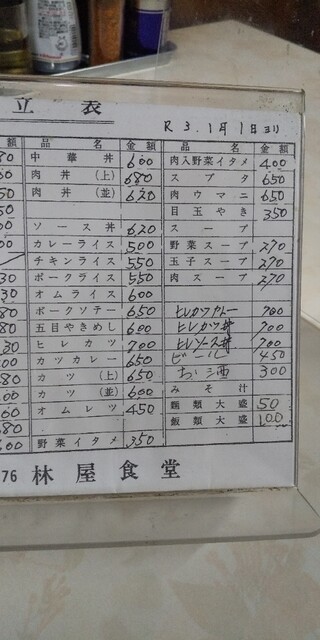 立 表
R 3. 1月 1日 ヨリ
額 品 名 金 額 品 名 金 額
中 華 丼 600 肉入野菜イタメ 400
肉 丼 (上) 680 ス ブ タ 650
肉 丼 (並) 620 肉 ウ マ ニ 650
目 玉 や き 350
ソ ー ス 丼 620 ス ー プ
カ レ ー ラ イ ス 500 野 菜 ス ー プ 270
チ キ ン ラ イ ス 550 玉 子 ス ー プ 270
ポ ー ク ラ イ ス 550 肉 ス ー プ 270
オ ム ラ イ ス 600
ポ ー ク ソ テ ー 650 ヒレカツカレー 700
五 目 や き め し 600 ヒレカツ丼 700
ヒ レ カ ツ 700 ヒレソース丼 700
カ ツ カ レ ー 650 ビール 450
カ ツ (上) 650 お 酒 300
カ ツ (並) 600 み そ 汁
オ ム レ ツ 450 麺 類 大 盛 50
飯 類 大 盛 100
野 菜 イ タ メ 350
76 林 屋 食 堂